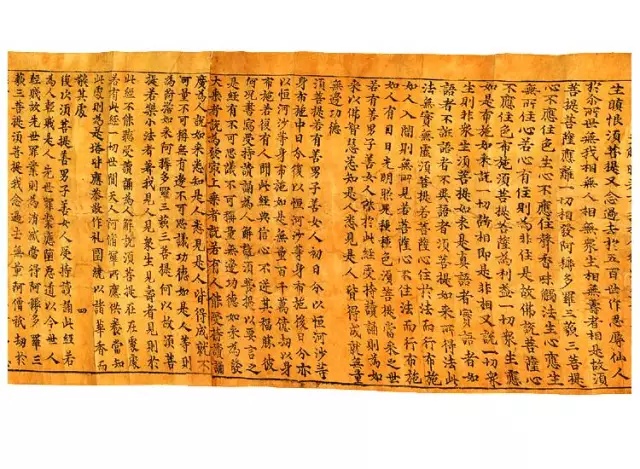 生瞋恨須菩提又念過去於五百世作忍辱仙人
於爾所世無我相無人相無衆生相無壽者相是故須
菩提菩薩應離一切相發阿耨多羅三藐三菩提
心不應住色生心不應住聲香味觸法生心應生
無所住心若心有住則為非住是故佛說菩薩心
不應住色布施須菩提菩薩為利益一切衆生應
如是布施如來說一切諸相即是非相又說一切衆
生則非衆生須菩提如來是真語者實語者如
語者不誑語者不異語者須菩提如來所得法此
法無實無虛須菩提若菩薩心住於法而行布施
如人入闇則無所見若菩薩心不住法而行布施
如人有目日光明照見種種色須菩提當來之世
若有善男子善女人能於此經受持讀誦則為如
來以佛智慧悉知是人悉見是人皆得成就無量
無邊功德
須菩提若有善男子善女人初日分以恒河沙等
身布施中日分復以恒河沙等身布施後日分亦
以恒河沙等身布施如是無量百千萬億劫以身
布施若復有人聞此經典信心不逆其福勝彼
何況書寫受持讀誦為人解說須菩提以要言之
是經有不可思議不可稱量無邊功德如來為發
大乘者說為發最上乘者說若有人能受持讀誦
廣為人說如來悉知是人悉見是人皆得成就不
可量不可稱無有邊不可思議功德如是人等則
為荷擔如來阿耨多羅三藐三菩提何以故須菩
提若樂小法者著我見人見衆生見壽者見則於
此經不能聽受讀誦為人解說須菩提在在處處
若有此經一切世間天人阿修羅所應供養當知
此處則為是塔皆應恭敬作禮圍繞以諸華香而
散其處 四
復次須菩提善男子善女人受持讀誦此經若
為人輕賤是人先世罪業應墮惡道以今世人
輕賤故先世罪業則為消滅當得阿耨多羅三
藐三菩提須菩提我念過去無量阿僧祇劫於